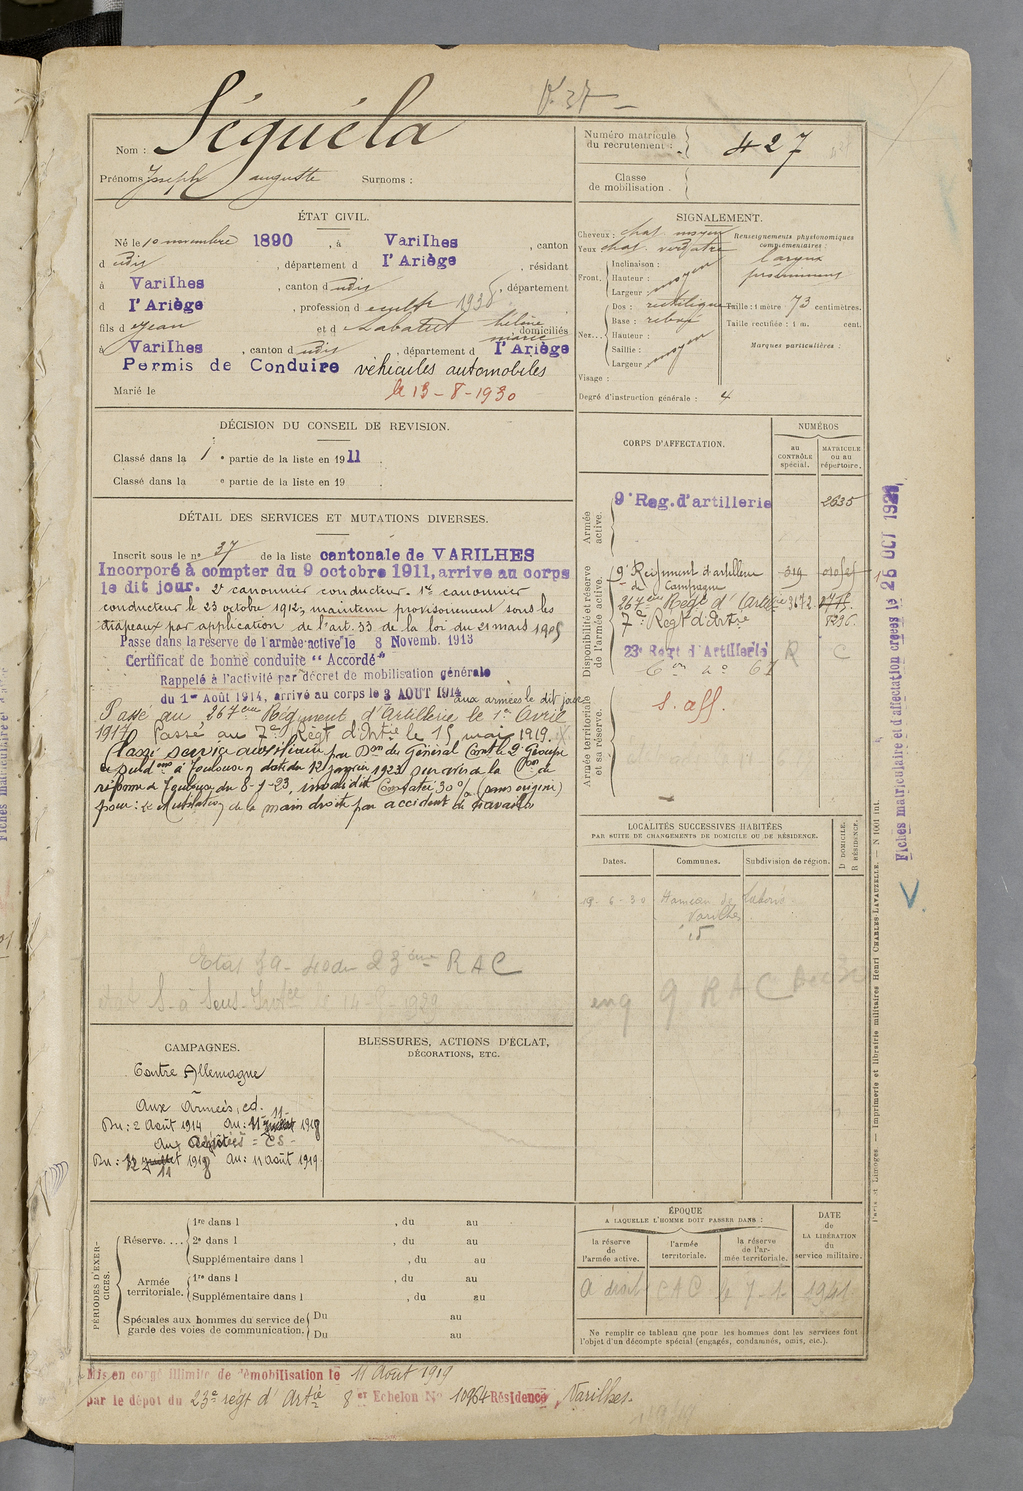 V. 37 –
Nom : Séguéla
Prénoms Joseph auguste Surnoms :
Numéro matricule du recrutement : 427
Classe de mobilisation .
ÉTAT CIVIL.
Né le 10 novembre 1890 , à Varilhes , canton
d udis , département d l'Ariège , résidant
à Varilhes , canton d udis , département
d l'Ariège , profession de cult 1938
fils d Jean et d Labatut hélène marie domiciliés
à Varilhes , canton d udis , département d l'Ariège
Permis de Conduire véhicules automobiles
Marié le le 13 – 8 – 1930
SIGNALEMENT.
Cheveux : chat. moyen
Yeux chat. verdâtre
Renseignements physionomiques complémentaires :
larynx
proéminent
Front. Inclinaison :
Hauteur : moyen
Largeur :
Nez... Dos : rectiligne
Base : relevé
Hauteur :
Saillie : moyen
Largeur
Taille : 1 mètre 73 centimètres.
Taille rectifiée : 1 m. cent.
Marques particulières :
Visage :
Degré d'instruction générale : 4
DÉCISION DU CONSEIL DE REVISION.
Classé dans la 1 e partie de la liste en 1911 .
Classé dans la e partie de la liste en 19 .
DÉTAIL DES SERVICES ET MUTATIONS DIVERSES.
Inscrit sous le no 37 de la liste cantonale de VARILHES
Incorporé à compter du 9 octobre 1911, arrive au corps
le dit jour. 2e canonnier conducteur. 1er canonnier
conducteur le 23 octobre 1912, maintenu provisoirement sous les
drapeaux par application de l'art. 33 de la loi du 21 mars 1905
Passe dans la réserve de l'armée active le 8 Novemb. 1913
Certificat de bonne conduite "Accordé"
Rappelé à l'activité par décret de mobilisation générale
du 1er Août 1914, arrivé au corps le 3 AOUT 1914 aux armées le dit jour
Passé au 267eme Régiment d'Artillerie le 1er Avril
1917. Passé au 7e Régt d'Artie le 15 mai 1919.
Classé service auxiliaire par Don du Général Cont le 2e Groupe
à Toulouse en date du 12 janvier 1923 sur avis de la Con de
réforme de Toulouse du 8-1-23, invalidité Constatée 30% (sans origine)
pour : Mutilation de la main droite par accident de travail
Etat 39-40 du 23ème RAC
CORPS D'AFFECTATION.
NUMÉROS
AU CONTRÔLE spécial.
MATRICULE OU AU répertoire.
Armée active.
9e Reg. d'artillerie 2635
Disponibilité et réserve de l'armée active.
9e Régiment d'artillerie de Campagne 319
267eme Régt d'Artillie 3672
7e Regt d'Artie
23e Regt d'Artillerie R C
Armée territoriale et sa réserve.
S. aff.
LOCALITÉS SUCCESSIVES HABITÉES
PAR SUITE DE CHANGEMENTS DE DOMICILE OU DE RÉSIDENCE.
Dates. Communes. Subdivision de région. D DOMICILE. R RÉSIDENCE.
19-6-30 Hameau de
Varilhes
15
9 RAC
CAMPAGNES.
Contre Allemagne
Aux Armées, cd.
Du : 2 août 1914 au : 11 juillet 11 1918
Aux Dépôts = CS –
Du : 12 juillet 11 1918 au : 11 août 1919.
BLESSURES, ACTIONS D'ÉCLAT,
DÉCORATIONS, ETC.
PÉRIODES D'EXERCICES.
Réserve.... 1re dans l , du au
2e dans l , du au
Supplémentaire dans l , du au
Armée territoriale. 1re dans l , du au
Supplémentaire dans l , du au
Spéciales aux hommes du service de garde des voies de communication. Du au
Du au
ÉPOQUE
A LAQUELLE L'HOMME DOIT PASSER DANS :
la réserve de l'armée active.
l'armée territoriale.
la réserve de l'armée territoriale.
DATE de LA LIBÉRATION du service militaire.
A droit CAC le 7-1- 1941
Ne remplir ce tableau que pour les hommes dont les services font
l'objet d'un décompte spécial (engagés, condamnés, omis, etc.).
Mis en congé illimité de démobilisation le 11 Août 1919
par le dépôt du 23e régt d'Artie 8er Echelon No 10964 Résidence Varilhes.
Fiches matriculaire et d'affectation créées le 26 OCT 1921
V.
Paris et Limoges. — Imprimerie et librairie militaires Henri CHARLES-LAVAUZELLE. — N 1001 int.